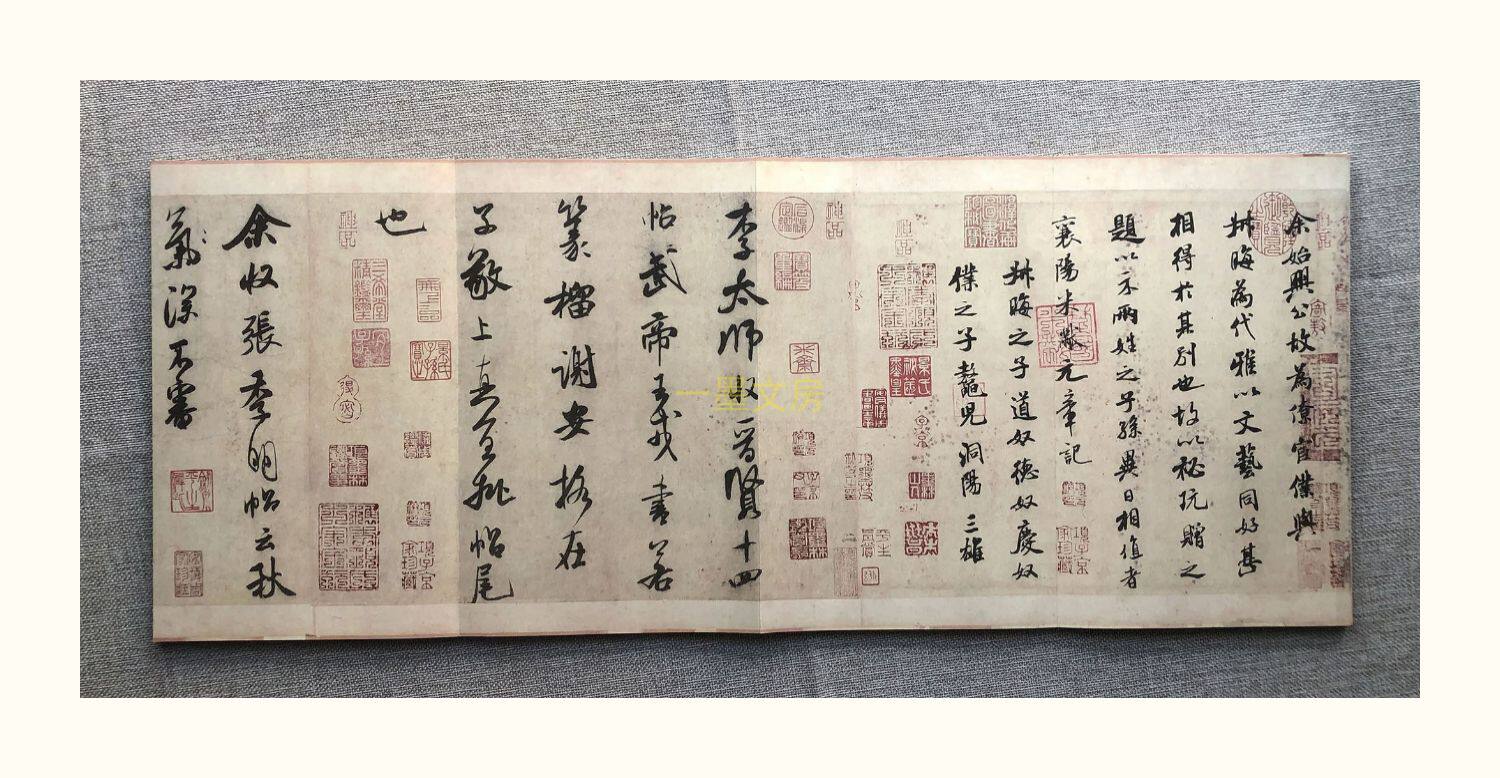 余始興公故為僚宦僕與
叔晦為代雅以文藝同好甚
相得於其別也故以秘玩贈之
題以示兩姓之子孫異日相值者
襄陽米黻元章記
叔晦之子道奴德奴慶奴
僕之子鼇兒洞陽三雄
李太師收晉賢十四
帖武帝王戎書若
篆籀謝安格在
子敬上真宜批帖尾
也
余收張季明帖云秋
氣深不審
一墨文房